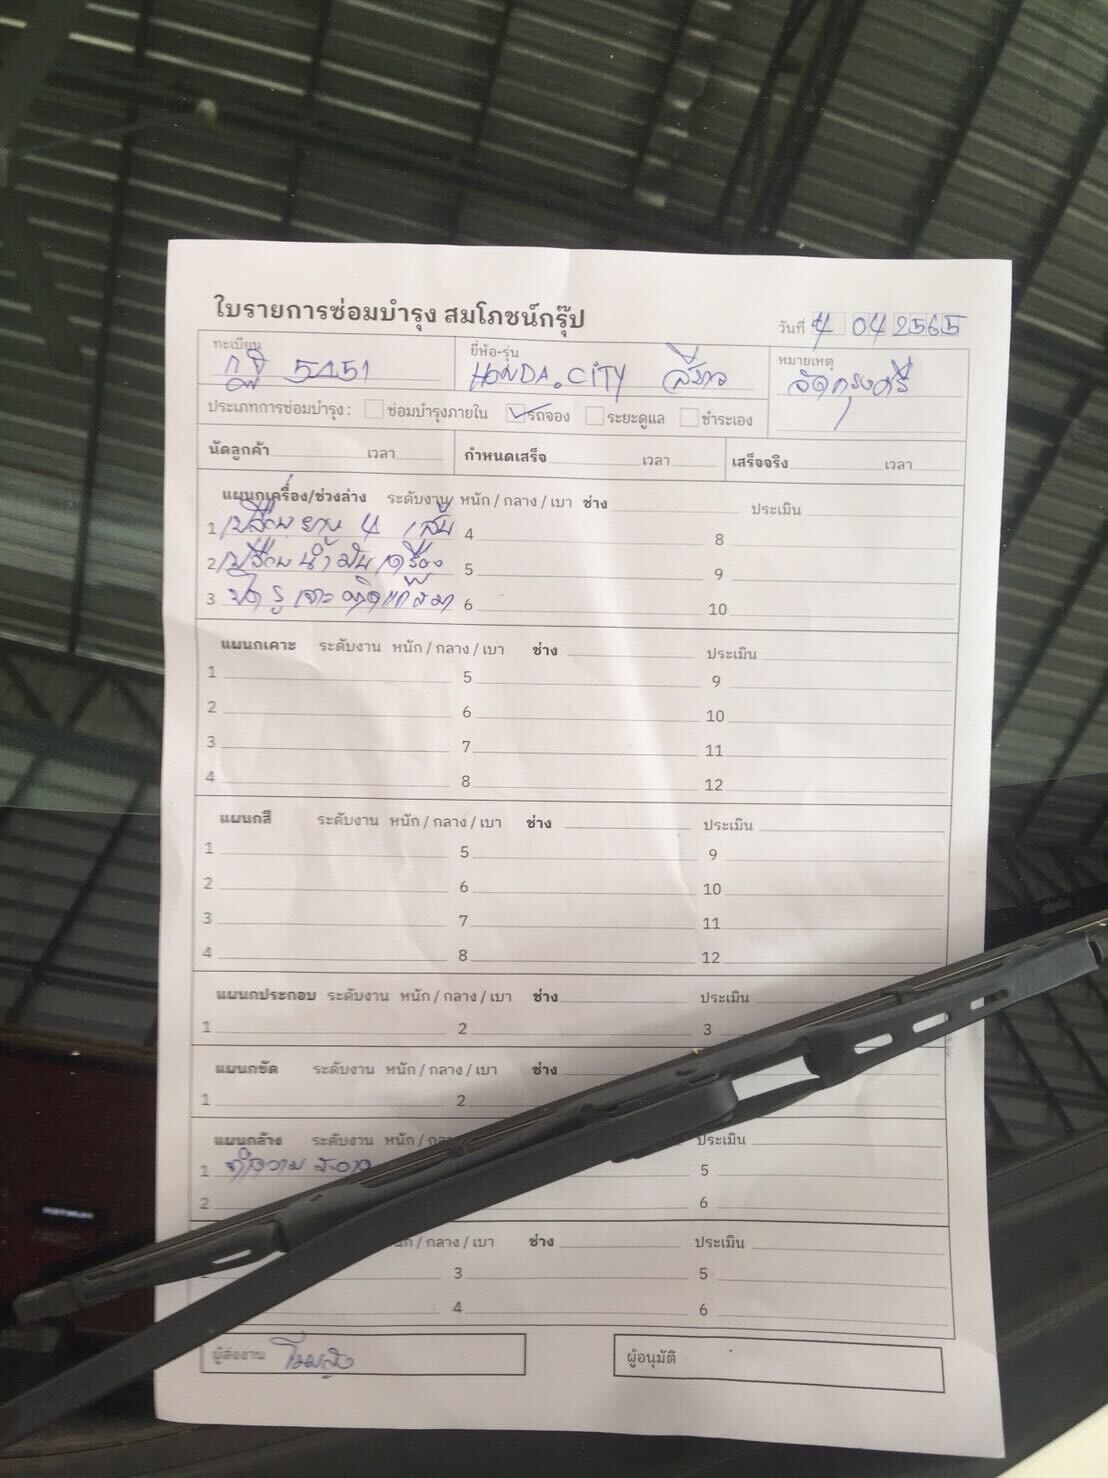 ใบรายการซ่อมบำรุง สมโภชน์กรุ๊ป
วันที่ 4 04 2565
ทะเบียน ยี่ห้อ-รุ่น หมายเหตุ
5151 HONDA.CITY สีขาว จัดกรุงศรี
ประเภทการซ่อมบำรุง: ซ่อมบำรุงภายใน รถจอง ระยะดูแล ชำระเอง
นัดลูกค้า เวลา กำหนดเสร็จ เวลา เสร็จจริง เวลา
แผนกเครื่อง/ช่วงล่าง ระดับงาน หนัก / กลาง / เบา ช่าง ประเมิน
1 เปลี่ยน ยาง 4 เส้น 4 8
2 เปลี่ยน น้ำมันเครื่อง 5 9
3 ปิด รู เจาะ 6 10
แผนกเคาะ ระดับงาน หนัก / กลาง / เบา ช่าง ประเมิน
1 5 9
2 6 10
3 7 11
4 8 12
แผนกสี ระดับงาน หนัก / กลาง / เบา ช่าง ประเมิน
1 5 9
2 6 10
3 7 11
4 8 12
แผนกประกอบ ระดับงาน หนัก / กลาง / เบา ช่าง ประเมิน
1 2 3
แผนกขัด ระดับงาน หนัก / กลาง / เบา ช่าง
1 2
แผนกล้าง ระดับงาน หนัก / ประเมิน
1 ทำความ สะอาด 5
2 6
/ กลาง / เบา ช่าง ประเมิน
3 5
4 6
ผู้ส่งงาน ผู้อนุมัติ